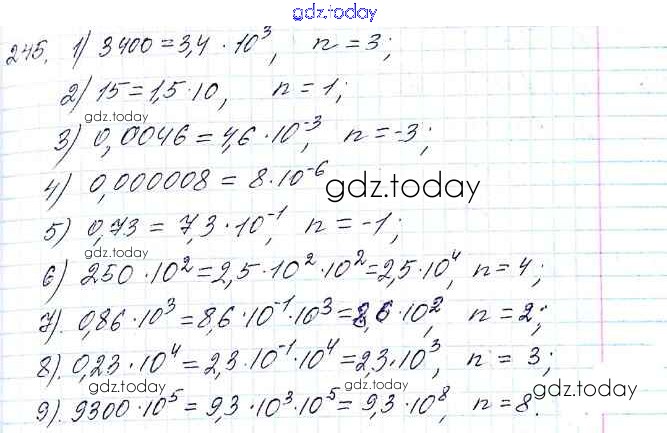 gdz.today
245. 1) 3400 = 3,4 · 10³, n = 3;
2) 15 = 1,5 · 10, n = 1;
gdz.today
3) 0,0046 = 4,6 · 10⁻³, n = -3;
4) 0,000008 = 8 · 10⁻⁶
gdz.today
5) 0,73 = 7,3 · 10⁻¹, n = -1;
gdz.today
6) 250 · 10² = 2,5 · 10² · 10² = 2,5 · 10⁴, n = 4;
7). 0,86 · 10³ = 8,6 · 10⁻¹ · 10³ = 8,6 · 10², n = 2;
8). 0,23 · 10⁴ = 2,3 · 10⁻¹ · 10⁴ = 2,3 · 10³, n = 3;
gdz.today gdz.today gdz.today
9). 9300 · 10⁵ = 9,3 · 10³ · 10⁵ = 9,3 · 10⁸, n = 8.